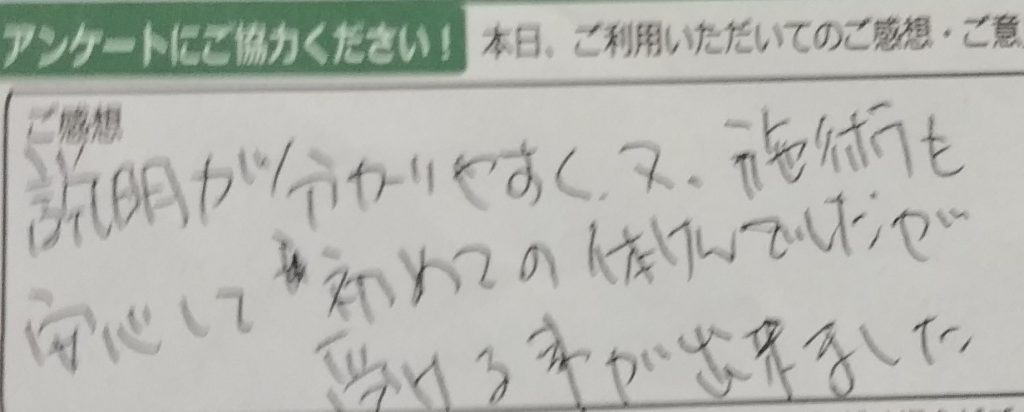 アンケートにご協力ください! 本日、ご利用いただいてのご感想・ご意
ご感想
説明が分かりやすく、又、施術も
安心して 初めての体けんでしたが
受ける事が出来ました